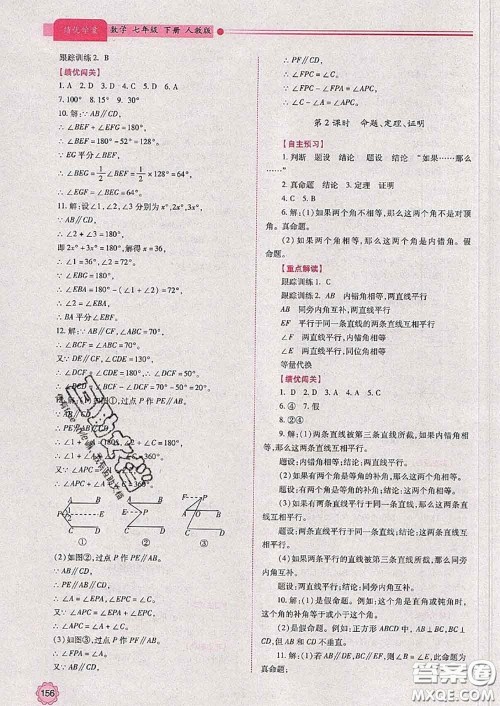 绩优学案 数学 七年级 下册 人教版
跟踪训练 2. B
【绩优闯关】
1. A 2. D 3. C 4. D 5. D 6. A
7. 100° 8. 15° 9. 30°
10. 解:∵AB∥CD,
∴∠BEF+∠EFG=180°,
∴∠BEF=180°-52°=128°.
∵EG平分∠BEF,
∴∠BEG=1/2∠BEF=1/2×128°=64°,
∴∠EGF=∠BEG=64°.
11. 解:设∠1,∠2,∠3分别为x°,2x°,3x°.
∵AB∥CD,
∴∠2+∠3=180°,
即2x°+3x°=180°,解得x=36°.
∴∠1=36°,∠2=72°.
∵∠EBG=180°,
∴∠EBA=180°-(∠1+∠2)=72°,
∴∠2=∠EBA,
∴BA平分∠EBF.
12. 解:∵AB∥CF,∠ABC=70°,
∴∠BCF=∠ABC=70°.
又∵DE∥CF,∠CDE=130°,
∴∠DCF+∠CDE=180°,
∴∠DCF=50°,
∴∠BCD=∠BCF-∠DCF=70°-50°=20°.
①,过点P作PE∥AB,
又∵AB∥CD,
∴PE∥AB∥CD,
① ② ③
(2)如图②,过点P作PE∥AB.
∵AB∥CD,
∴PE∥AB∥CD,
∴∠A=∠EPA,∠EPC=∠C,
∴∠APC=∠A+∠C.
(3)如图③,过点P作PF∥AB,
∴∠FPA=∠A.
又∵AB∥CD,
∴PF∥CD,
∴∠FPC=∠C.
∵∠FPC-∠FPA=∠APC,
∴∠C-∠A=∠APC.
第2课时 命题、定理、证明
【自主预习】
1. 判断 题设 结论 题设 结论 “如果……那么
……”
2. 真命题 结论 3. 定理 证明
4. C 5. C
6. 解:(1)如果两个角不相等,那么这两个角不是对顶
角。真命题。
(2)如果两个角相等,那么这两个角是内错角。假
命题。
【重点解读】
跟踪训练 1. C
跟踪训练 2. AB 内错角相等,两直线平行
AB 同旁内角互补,两直线平行
EF 平行于同一条直线的两条直线互相平行
∠F 两直线平行,内错角相等
∠E 两直线平行,内错角相等
等量代换
【绩优闯关】
1. D 2. D 3. A 4. A 5. C
6. ④ 7. 假
8. ②④
9. 解:(1)两条直线被第三条直线所截,如果内错角相
等,那么这两条直线平行。
题设:内错角相等;结论:两直线平行。
(2)如果两个角是等角的补角,那么这两个角相等。
题设:有两个角是等角的补角;结论:这两个角相等。
(3)如果两条直线平行于同一条直线,那么这两条
直线平行。
题设:两条直线平行于同一条直线;结论:这两条直
线平行。
(4)如果两条平行的直线被第三条直线所截,那么
同旁内角互补。
题设:两直线平行;结论:同旁内角互补。
10. 解:(1)是假命题。例如:这个角是直角或钝角时,
这个角的补角等于或小于这个角。
(2)是假命题。例如:正方形ABCD中,∠ABC与
∠ADC互补,但是这两个角不是同旁内角。
11. 解:(1)若AB∥DE,BC∥EF,则∠1=∠2。此命
题为真命题;
156
答案圈
MXQE.COM